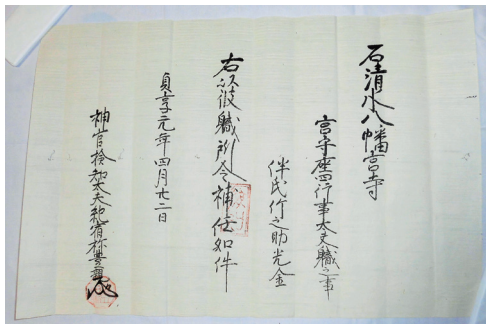 石清水八幡宮寺
宮守座四行事太夫職之事
伴氏竹之助光金
右以彼職所令補任如件
貞享元年四月廿二日
神官検知太夫紀宿祢豊